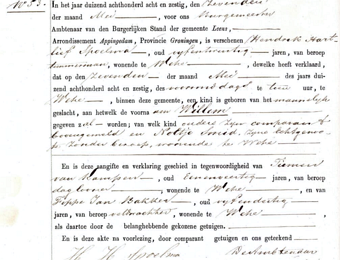 No 53.
In het jaar duizend achthonderd acht en zestig, den Zevenden
der maand Mei, voor ons Burgemeester
Ambtenaar van den Burgerlijken Stand der gemeente Leens,
Arrondissement Appingedam, Provincie Groningen, is verschenen Hendrik Hart-
lief Spoelma, oud vijfentwintig jaren, van beroep
timmerman, wonende te Wehe, dewelke heeft verklaard,
dat op den Zevenden der maand Mei des jaars dui-
zend achthonderd acht en zestig, des voormiddags te een uur, te
Wehe, binnen deze gemeente, een kind is geboren van het mannelijke
geslacht, aan hetwelk de voornaam Willem
gegeven zal worden; van welk kind ouders zijn comparant
bovengemeld en Smid, zijne echtgenoo-
te zonder beroep, wonende te Wehe
En is deze aangifte en verklaring geschied in tegenwoordigheid van
van Kampen, oud eenenveertig jaren, van beroep
dagloner, wonende te Wehe, en van
Jan Bakker, oud vijfendertig
jaren, van beroep veldwachter, wonende te Wehe,
als daartoe door de belanghebbende gekozene getuigen.
En is deze akte na voorlezing, door comparant getuigen en ons geteekend
H. H. Spoelma
De Ambtenaar